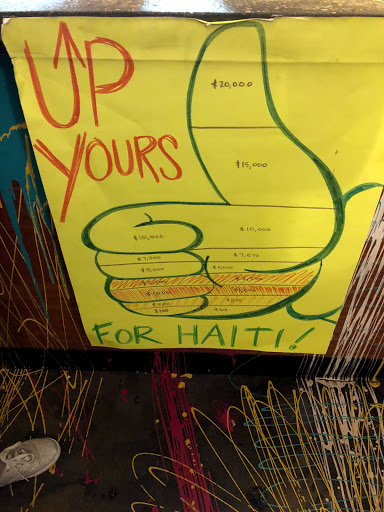 UP
YOURS
$20,000
$15,000
$10,000 $10,000
$7,500 $7,500
$5,000 $5,000
$100
FOR HAITI!